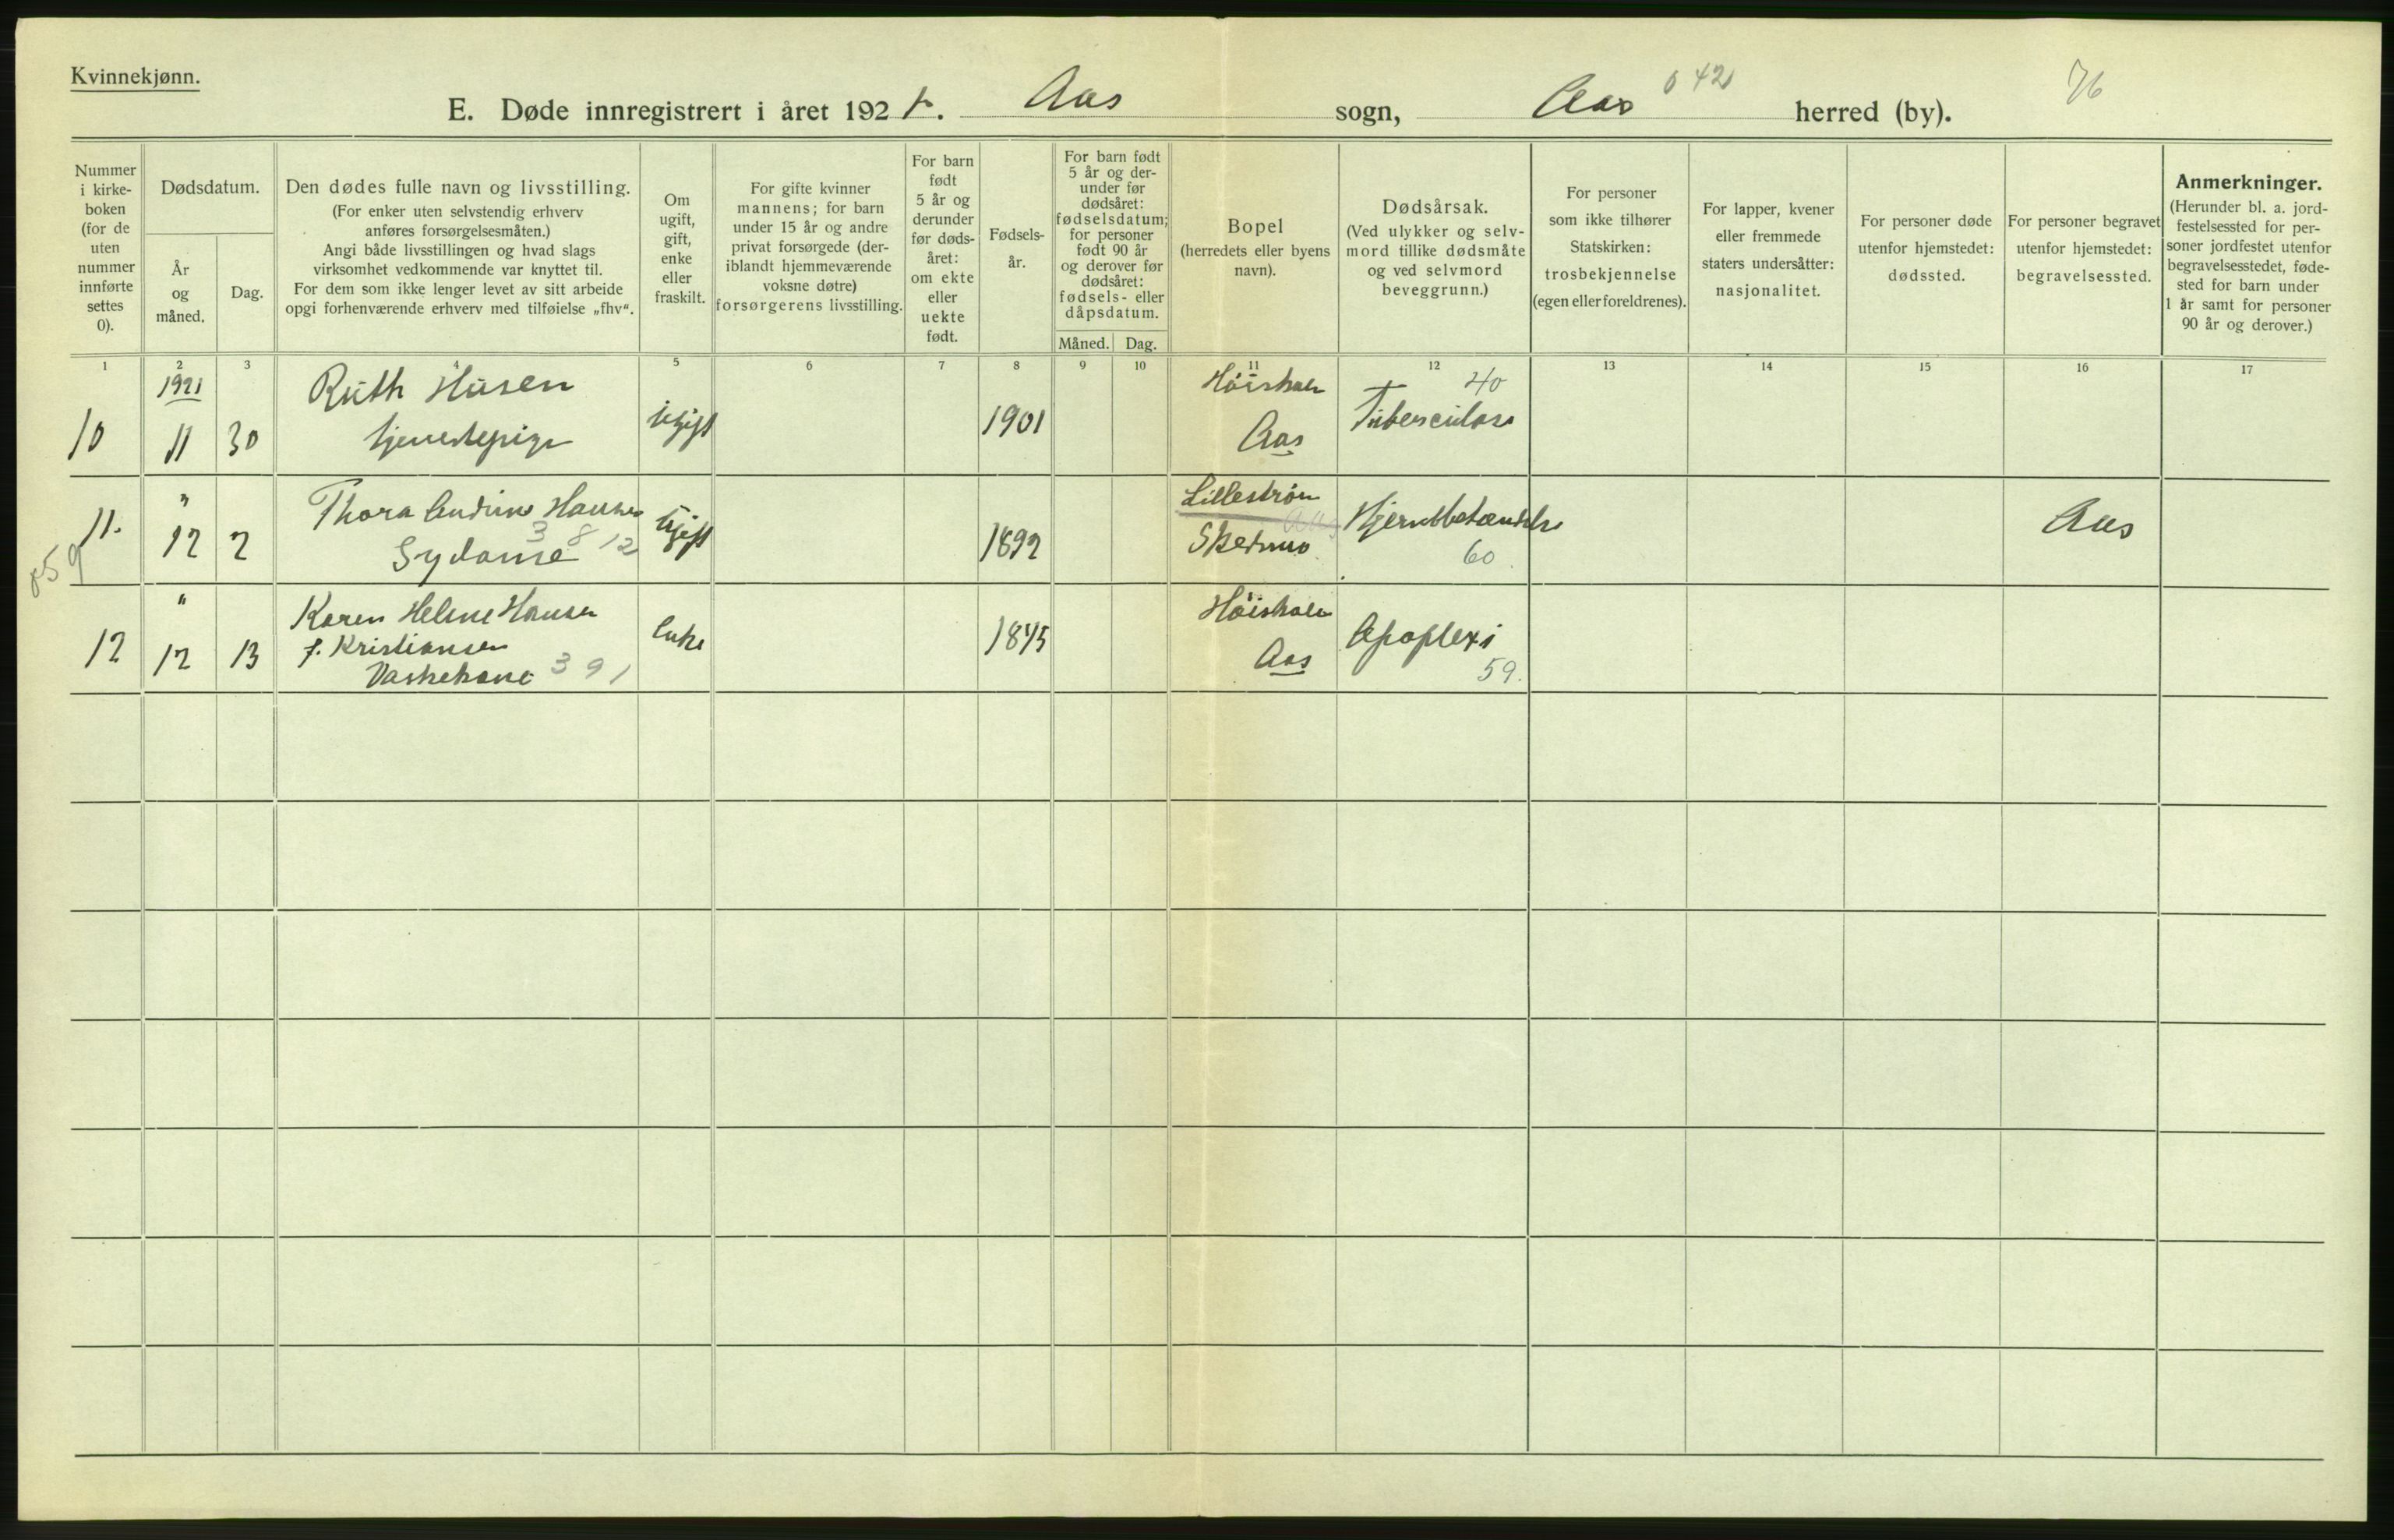 Kvinnekjønn.
E. Døde innregistrert i året 1921. Aas sogn, Aas herred (by).
0421
76
Nummer
i kirke-
boken
(for de
uten
nummer
innførte
settes
0).
Dødsdatum.
År
og
måned.
Dag.
Den dødes fulle navn og livsstilling.
(For enker uten selvstendig erhverv
anføres forsørgelsesmåten.)
Angi både livsstillingen og hvad slags
virksomhet vedkommende var knyttet til.
For dem som ikke lenger levet av sitt arbeide
opgi forhenværende erhverv med tilføielse „fhv“.
Om
ugift,
gift,
enke
eller
fraskilt.
For gifte kvinner
mannens; for barn
under 15 år og andre
privat forsørgede (der-
iblandt hjemmeværende
voksne døtre)
forsørgerens livsstilling.
For barn
født
5 år og
derunder
før døds-
året:
om ekte
eller
uekte
født.
Fødsels-
år.
For barn født
5 år og der-
under før
dødsåret:
fødselsdatum;
for personer
født 90 år
og derover før
dødsåret:
fødsels- eller
dåpsdatum.
Måned. Dag.
Bopel
(herredets eller byens
navn).
Dødsårsak.
(Ved ulykker og selv-
mord tillike dødsmåte
og ved selvmord
beveggrunn.)
For personer
som ikke tilhører
Statskirken:
trosbekjennelse
(egen eller foreldrenes).
For lapper, kvener
eller fremmede
staters undersåtter:
nasjonalitet.
For personer døde
utenfor hjemstedet:
dødssted.
For personer begravet
utenfor hjemstedet:
begravelsessted.
Anmerkninger.
(Herunder bl. a. jord-
festelsessted for per-
soner jordfestet utenfor
begravelsesstedet, føde-
sted for barn under
1 år samt for personer
90 år og derover.)
1 2 3 4 5 6 7 8 9 10 11 12 13 14 15 16 17
10
1921
11
30
Ruth Husen
tjenestepige
ugift
1901
Höiskolen
Aas
40
Tuberculose
11.
"
12
2
Thora Andrine Hansen
Sydame
3 8 12
ugift
1892
Lillestrøm
Aas
Skedsmo
Hjernebetændelse
60
Aas
059
12
"
12
13
Karen Helene Hansen
f. Kristiansen
Vaskekone 3 9 1
enke
1845
Höiskolen
Aas
Apoplexi
59.